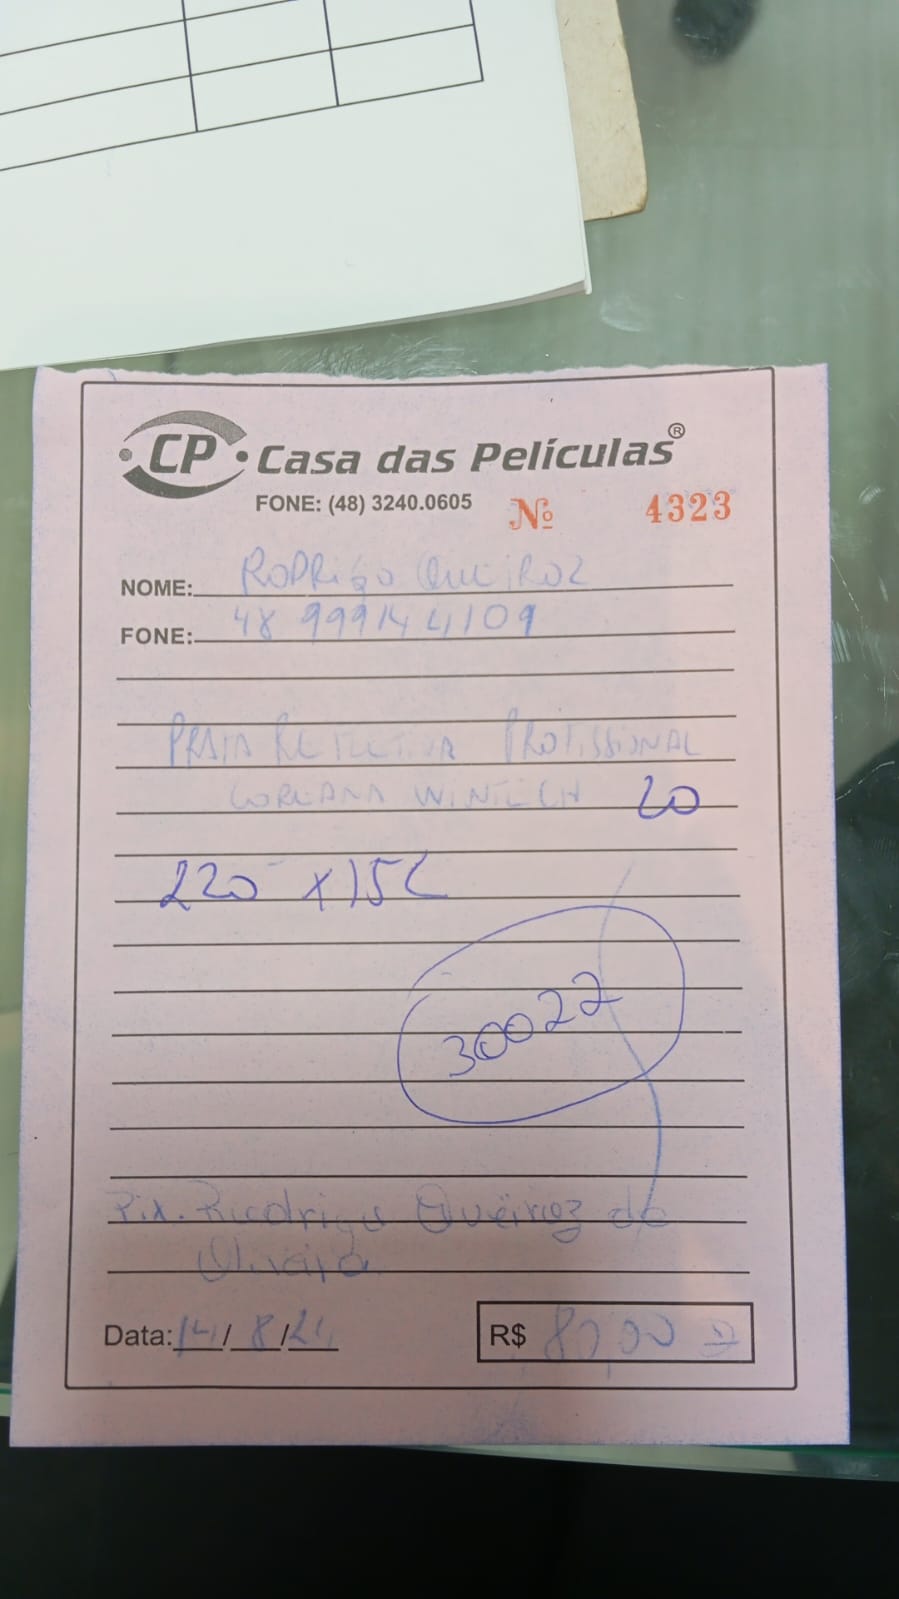 CP
Casa das Películas®
FONE: (48) 3240.0605 Nº 4323
NOME: RODRIGO QUEIROZ
FONE: 48 999144109
PRATA REFLETIVA PROFISSIONAL
COREANA WINTECH 20
220 x 152
30022
Pix. Rodrigo Queiroz de
Oliveira
Data: 14/8/24 R$